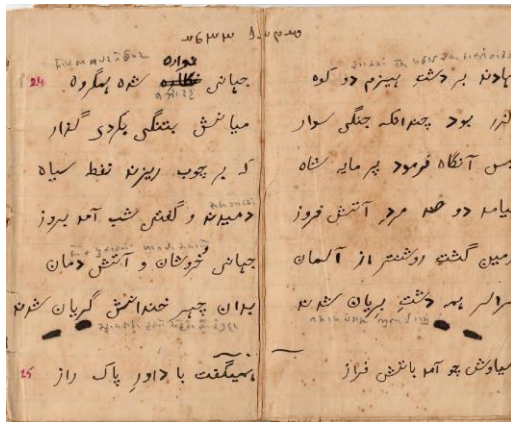 نهادند بر دشت هیزم دو کوه جهانی شده همگروه 24
گذر بود چندانکه جنگی سوار میانش بتنگی بکردی گذار
پس آنگاه فرمود پر مایه شاه که بر چوب ریزند نفط سیاه
بیامد دو صد مرد آتش فروز دمیدند و گفتی شب آمد بروز
زمین گشت روشنتر از آسمان جهانی خروشان و آتش دمان
سراسر همه دشت بریان شدند بدان چهر خندانش گریان شدند
سیاوش چو آمد بآتش فراز همیگفت با داور پاک راز 25